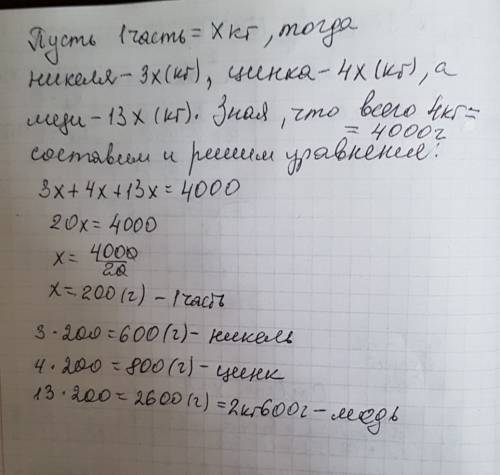 Пусть 1часть = х кг, тогда
никеля - 3х (кг), цинка - 4х (кг), а
меди - 13х (кг). Зная, что всего 4кг=
= 4000г
составим и решим уравнение:
3х + 4х + 13х = 4000
20х = 4000
х = 4000/20
х = 200 (г) - 1часть
3 · 200 = 600 (г) - никель
4 · 200 = 800 (г) - цинк
13 · 200 = 2600 (г) = 2кг600г - медь